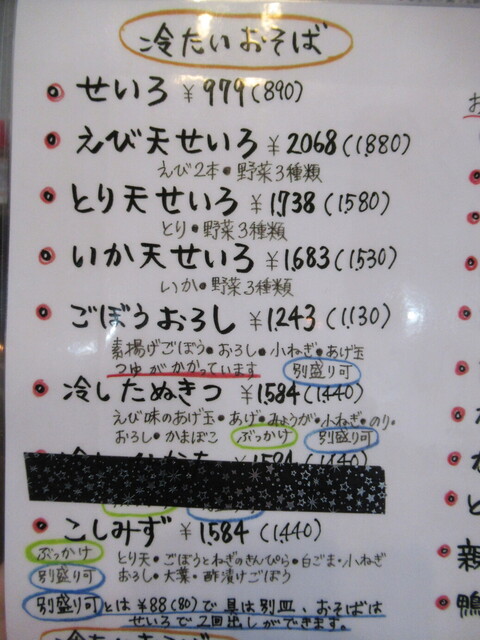 冷たいおそば
せいろ ¥979(890)
えび天せいろ ¥2068(1,880)
えび2本・野菜3種類
とり天せいろ ¥1,738(1,580)
とり・野菜3種類
いか天せいろ ¥1,683(1,530)
いか・野菜3種類
ごぼうおろし ¥1,243(1,130)
素揚げごぼう・おろし・小ねぎ・あげ玉
つゆがかかっています 別盛り可
冷したぬきつ ¥1,584(1,440)
えび味のあげ玉・あげ・みょうが・小ねぎ・のり・
おろし・かまぼこ ぶっかけ 別盛り可
こしみず ¥1,584(1,440)
ぶっかけ とり天・ごぼうとねぎのきんぴら・白ごま・小ねぎ
別盛り可 おろし・大葉・酢漬けごぼう
別盛り可とは¥88(80)で具は別皿、おそばは
せいろで2回出しができます。
親
鴨